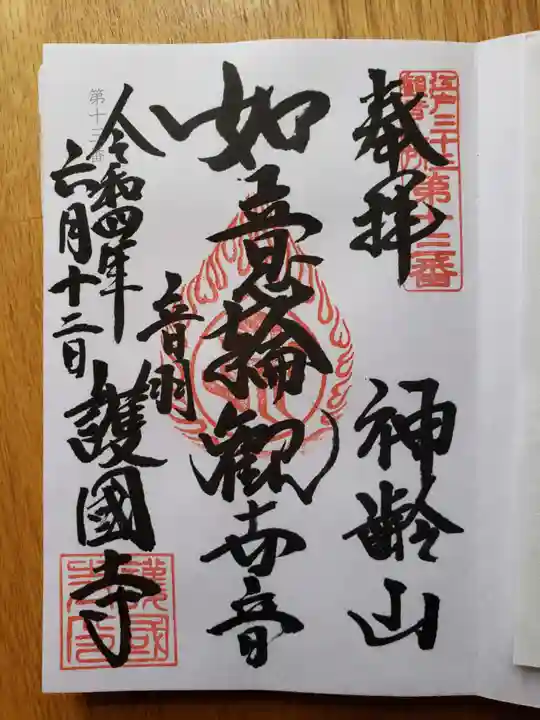 江戸三十三
観音札所
第十三番
奉拝
神齢山
如意輪観世音
音羽
護國寺
令和四年
六月十二日
第十三番